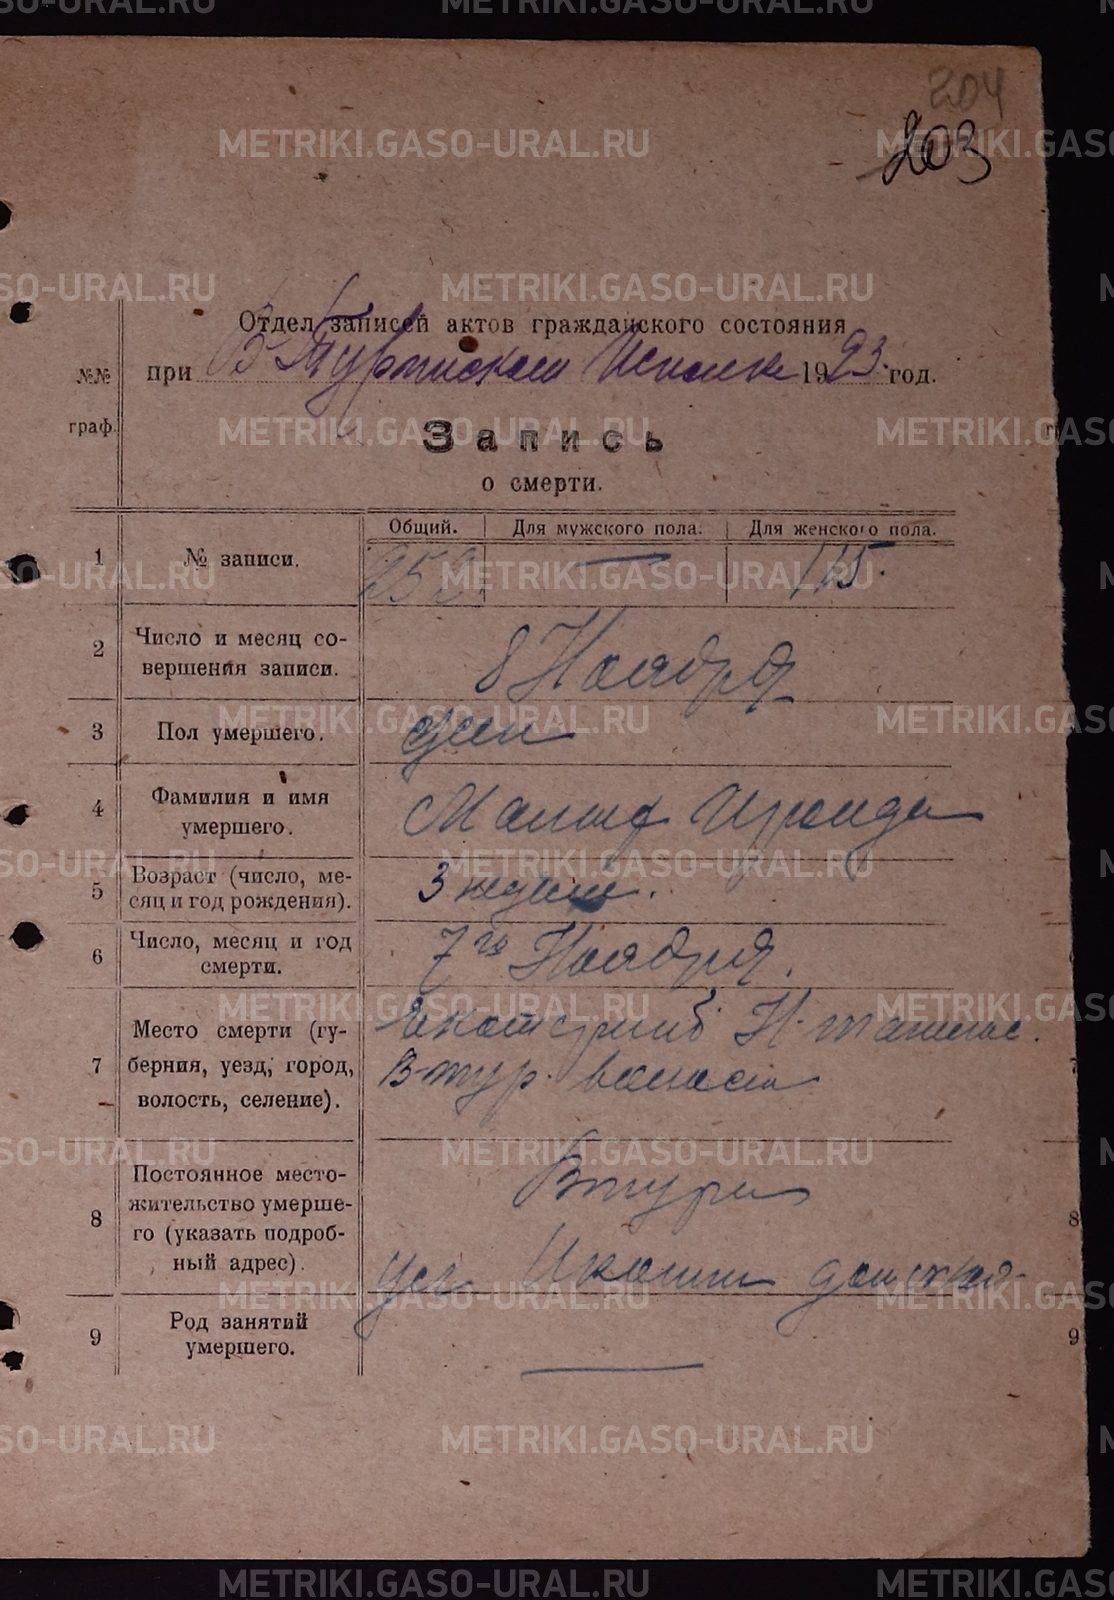 204
203
Отдел записей актов гражданского состояния
при В-Туринском 1923 год.
№№ граф.
Запись
о смерти.
Общий. Для мужского пола. Для женского пола.
1 № записи. 252 — 115.
2 Число и месяц совершения записи. 8 Ноября
3 Пол умершего. жен
4 Фамилия и имя умершего. Ираида
5 Возраст (число, месяц и год рождения). 3 недели.
6 Число, месяц и год смерти. 7го Ноября.
7 Место смерти (губерния, уезд, город, волость, селение). Екатеринб Н-тагильс.
В-тур. волости
8 Постоянное местожительство умершего (указать подробный адрес). Втура
ул.
9 Род занятий умершего. —
8
9
METRIKI.GASO-URAL.RU